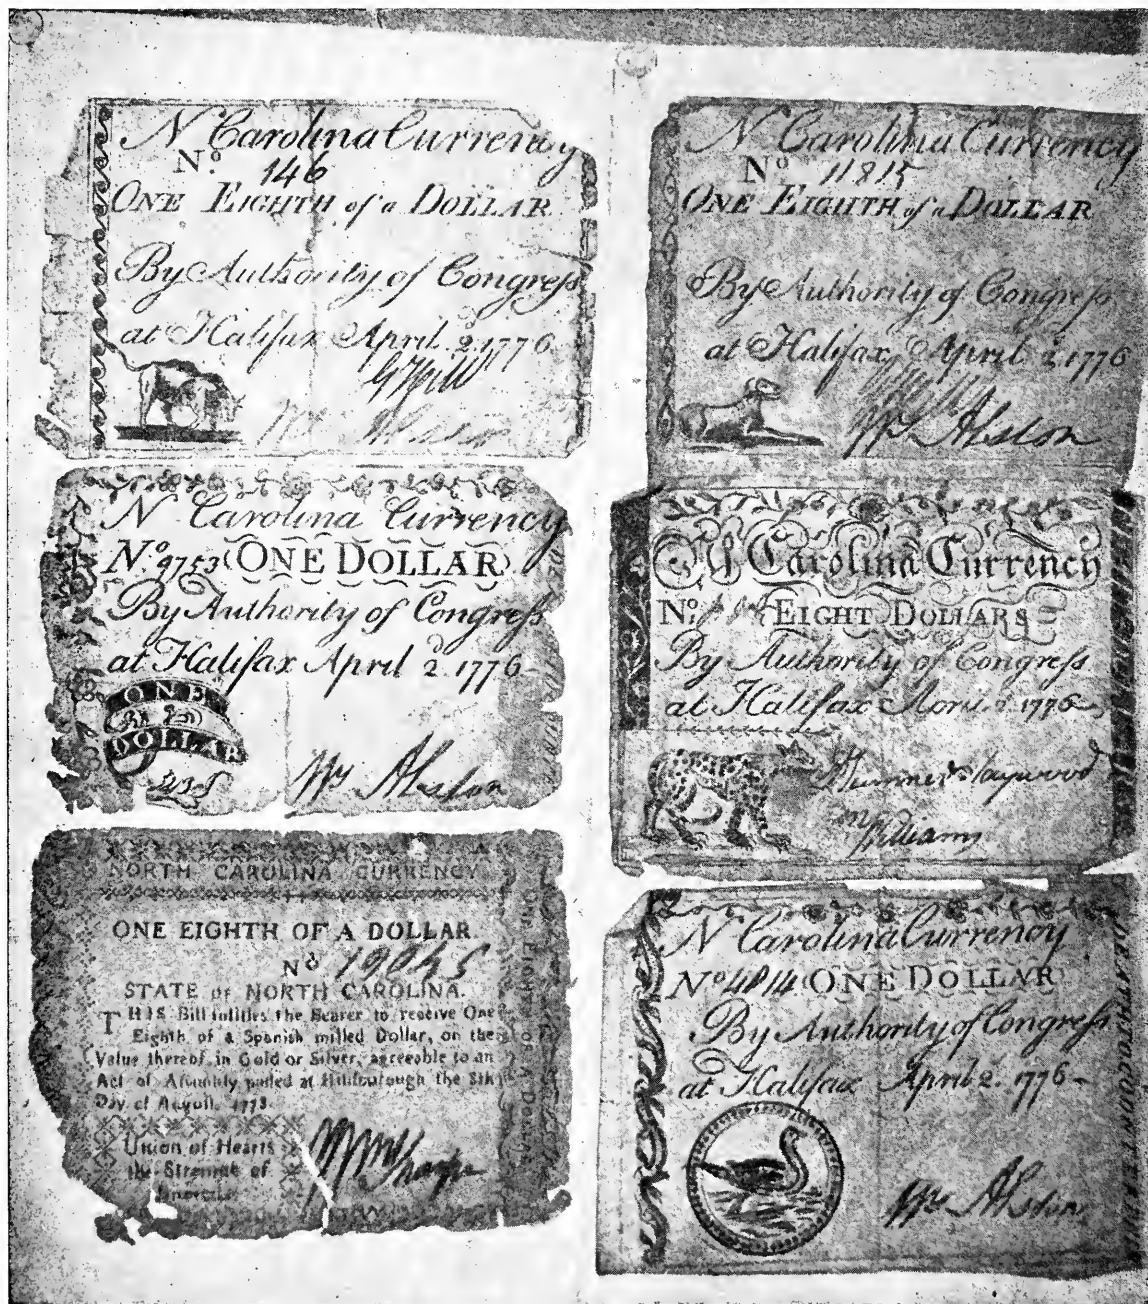 N Carolina Currency
No. 146
ONE EIGHTH of a DOLLAR
By Authority of Congreſs
at Halifax April 2d. 1776
N Carolina Currency
No. 9753 (ONE DOLLAR)
By Authority of Congreſs
at Halifax April 2d. 1776
ONE
DOLLAR
Wm Alston
NORTH CAROLINA CURRENCY
ONE EIGHTH OF A DOLLAR
No
STATE of NORTH CAROLINA.
THIS Bill intitles the Bearer to receive One
Eighth of a Spanish milled Dollar, or the
Value thereof in Gold or Silver, agreeable to an
Act of Aſſembly paſſed at Hillſborough the 8th
Day of Auguſt, 1778.
Union of Hearts
the Strength of
N Carolina Currency
No 11815
ONE EIGHTH of a DOLLAR
By Authority of Congreſs
at Halifax April 2d, 1776
Wm Alston
N Carolina Currency
No. EIGHT DOLLARS
By Authority of Congreſs
at Halifax April 2. 1776
Williams
N Carolina Currency
No 4814 (ONE DOLLAR)
By Authority of Congreſs
at Halifax April 2. 1776
Wm Alston